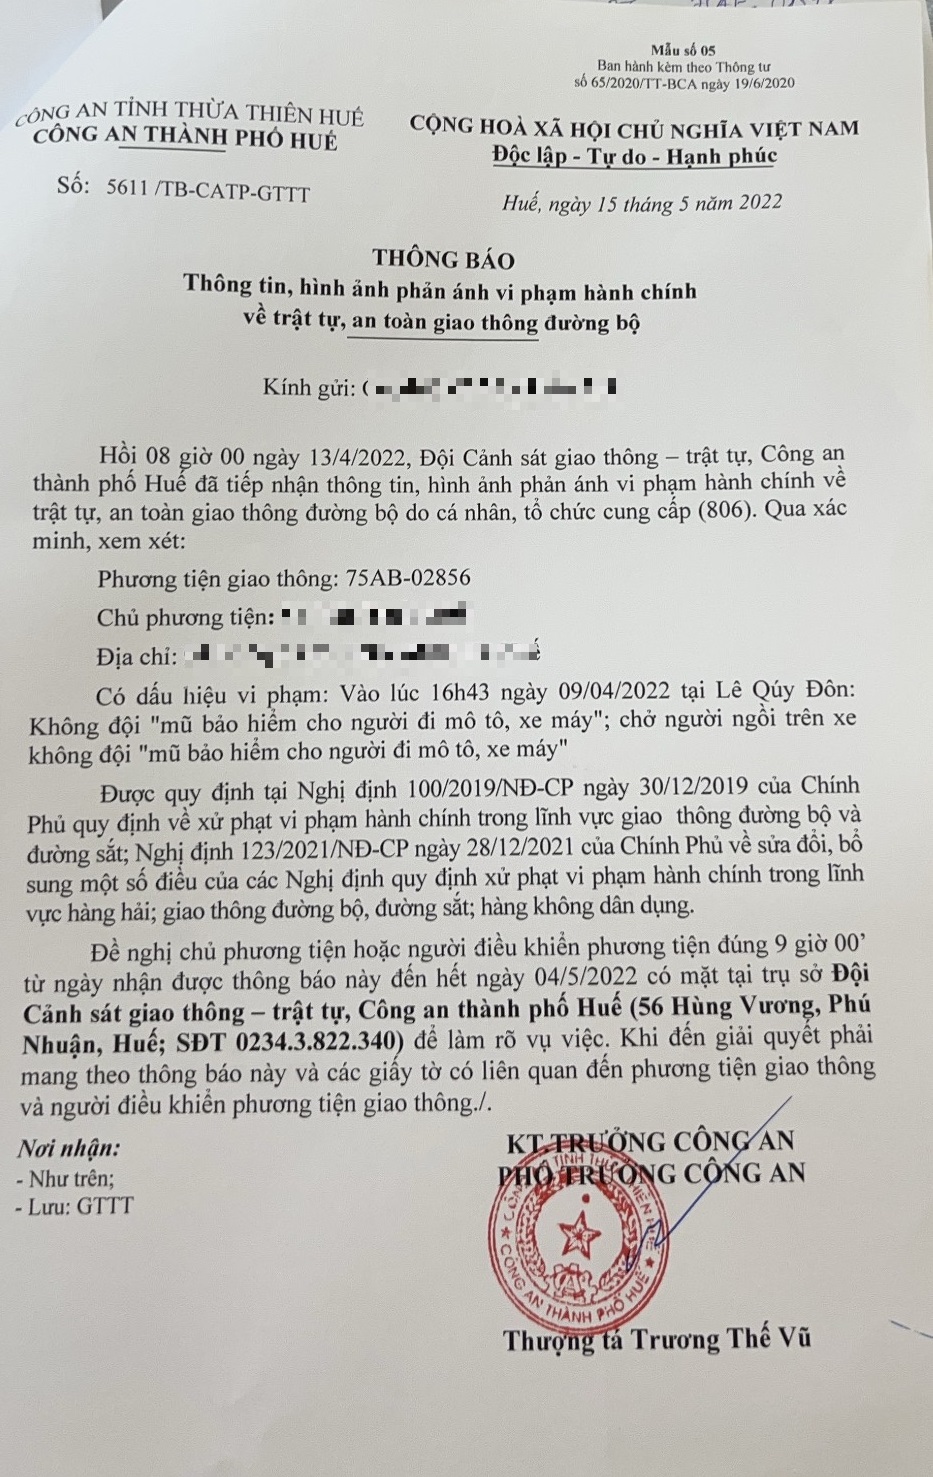 Mẫu số 05
Ban hành kèm theo Thông tư
số 65/2020/TT-BCA ngày 19/6/2020
CÔNG AN TỈNH THỪA THIÊN HUẾ
CÔNG AN THÀNH PHỐ HUẾ
CỘNG HOÀ XÃ HỘI CHỦ NGHĨA VIỆT NAM
Độc lập - Tự do - Hạnh phúc
Số: 5611 /TB-CATP-GTTT
Huế, ngày 15 tháng 5 năm 2022
THÔNG BÁO
Thông tin, hình ảnh phản ánh vi phạm hành chính
về trật tự, an toàn giao thông đường bộ
Kính gửi:
Hồi 08 giờ 00 ngày 13/4/2022, Đội Cảnh sát giao thông – trật tự, Công an
thành phố Huế đã tiếp nhận thông tin, hình ảnh phản ánh vi phạm hành chính về
trật tự, an toàn giao thông đường bộ do cá nhân, tổ chức cung cấp (806). Qua xác
minh, xem xét:
Phương tiện giao thông: 75AB-02856
Chủ phương tiện:
Địa chỉ:
Có dấu hiệu vi phạm: Vào lúc 16h43 ngày 09/04/2022 tại Lê Qúy Đôn:
Không đội "mũ bảo hiểm cho người đi mô tô, xe máy"; chở người ngồi trên xe
không đội "mũ bảo hiểm cho người đi mô tô, xe máy"
Được quy định tại Nghị định 100/2019/NĐ-CP ngày 30/12/2019 của Chính
Phủ quy định về xử phạt vi phạm hành chính trong lĩnh vực giao thông đường bộ và
đường sắt; Nghị định 123/2021/NĐ-CP ngày 28/12/2021 của Chính Phủ về sửa đổi, bổ
sung một số điều của các Nghị định quy định xử phạt vi phạm hành chính trong lĩnh
vực hàng hải; giao thông đường bộ, đường sắt; hàng không dân dụng.
Đề nghị chủ phương tiện hoặc người điều khiển phương tiện đúng 9 giờ 00’
từ ngày nhận được thông báo này đến hết ngày 04/5/2022 có mặt tại trụ sở Đội
Cảnh sát giao thông – trật tự, Công an thành phố Huế (56 Hùng Vương, Phú
Nhuận, Huế; SĐT 0234.3.822.340) để làm rõ vụ việc. Khi đến giải quyết phải
mang theo thông báo này và các giấy tờ có liên quan đến phương tiện giao thông
và người điều khiển phương tiện giao thông./.
Nơi nhận:
- Như trên;
- Lưu: GTTT
KT.TRƯỞNG CÔNG AN
PHÓ TRƯỞNG CÔNG AN
CÔNG AN THÀNH PHỐ HUẾ
Thượng tá Trương Thế Vũ